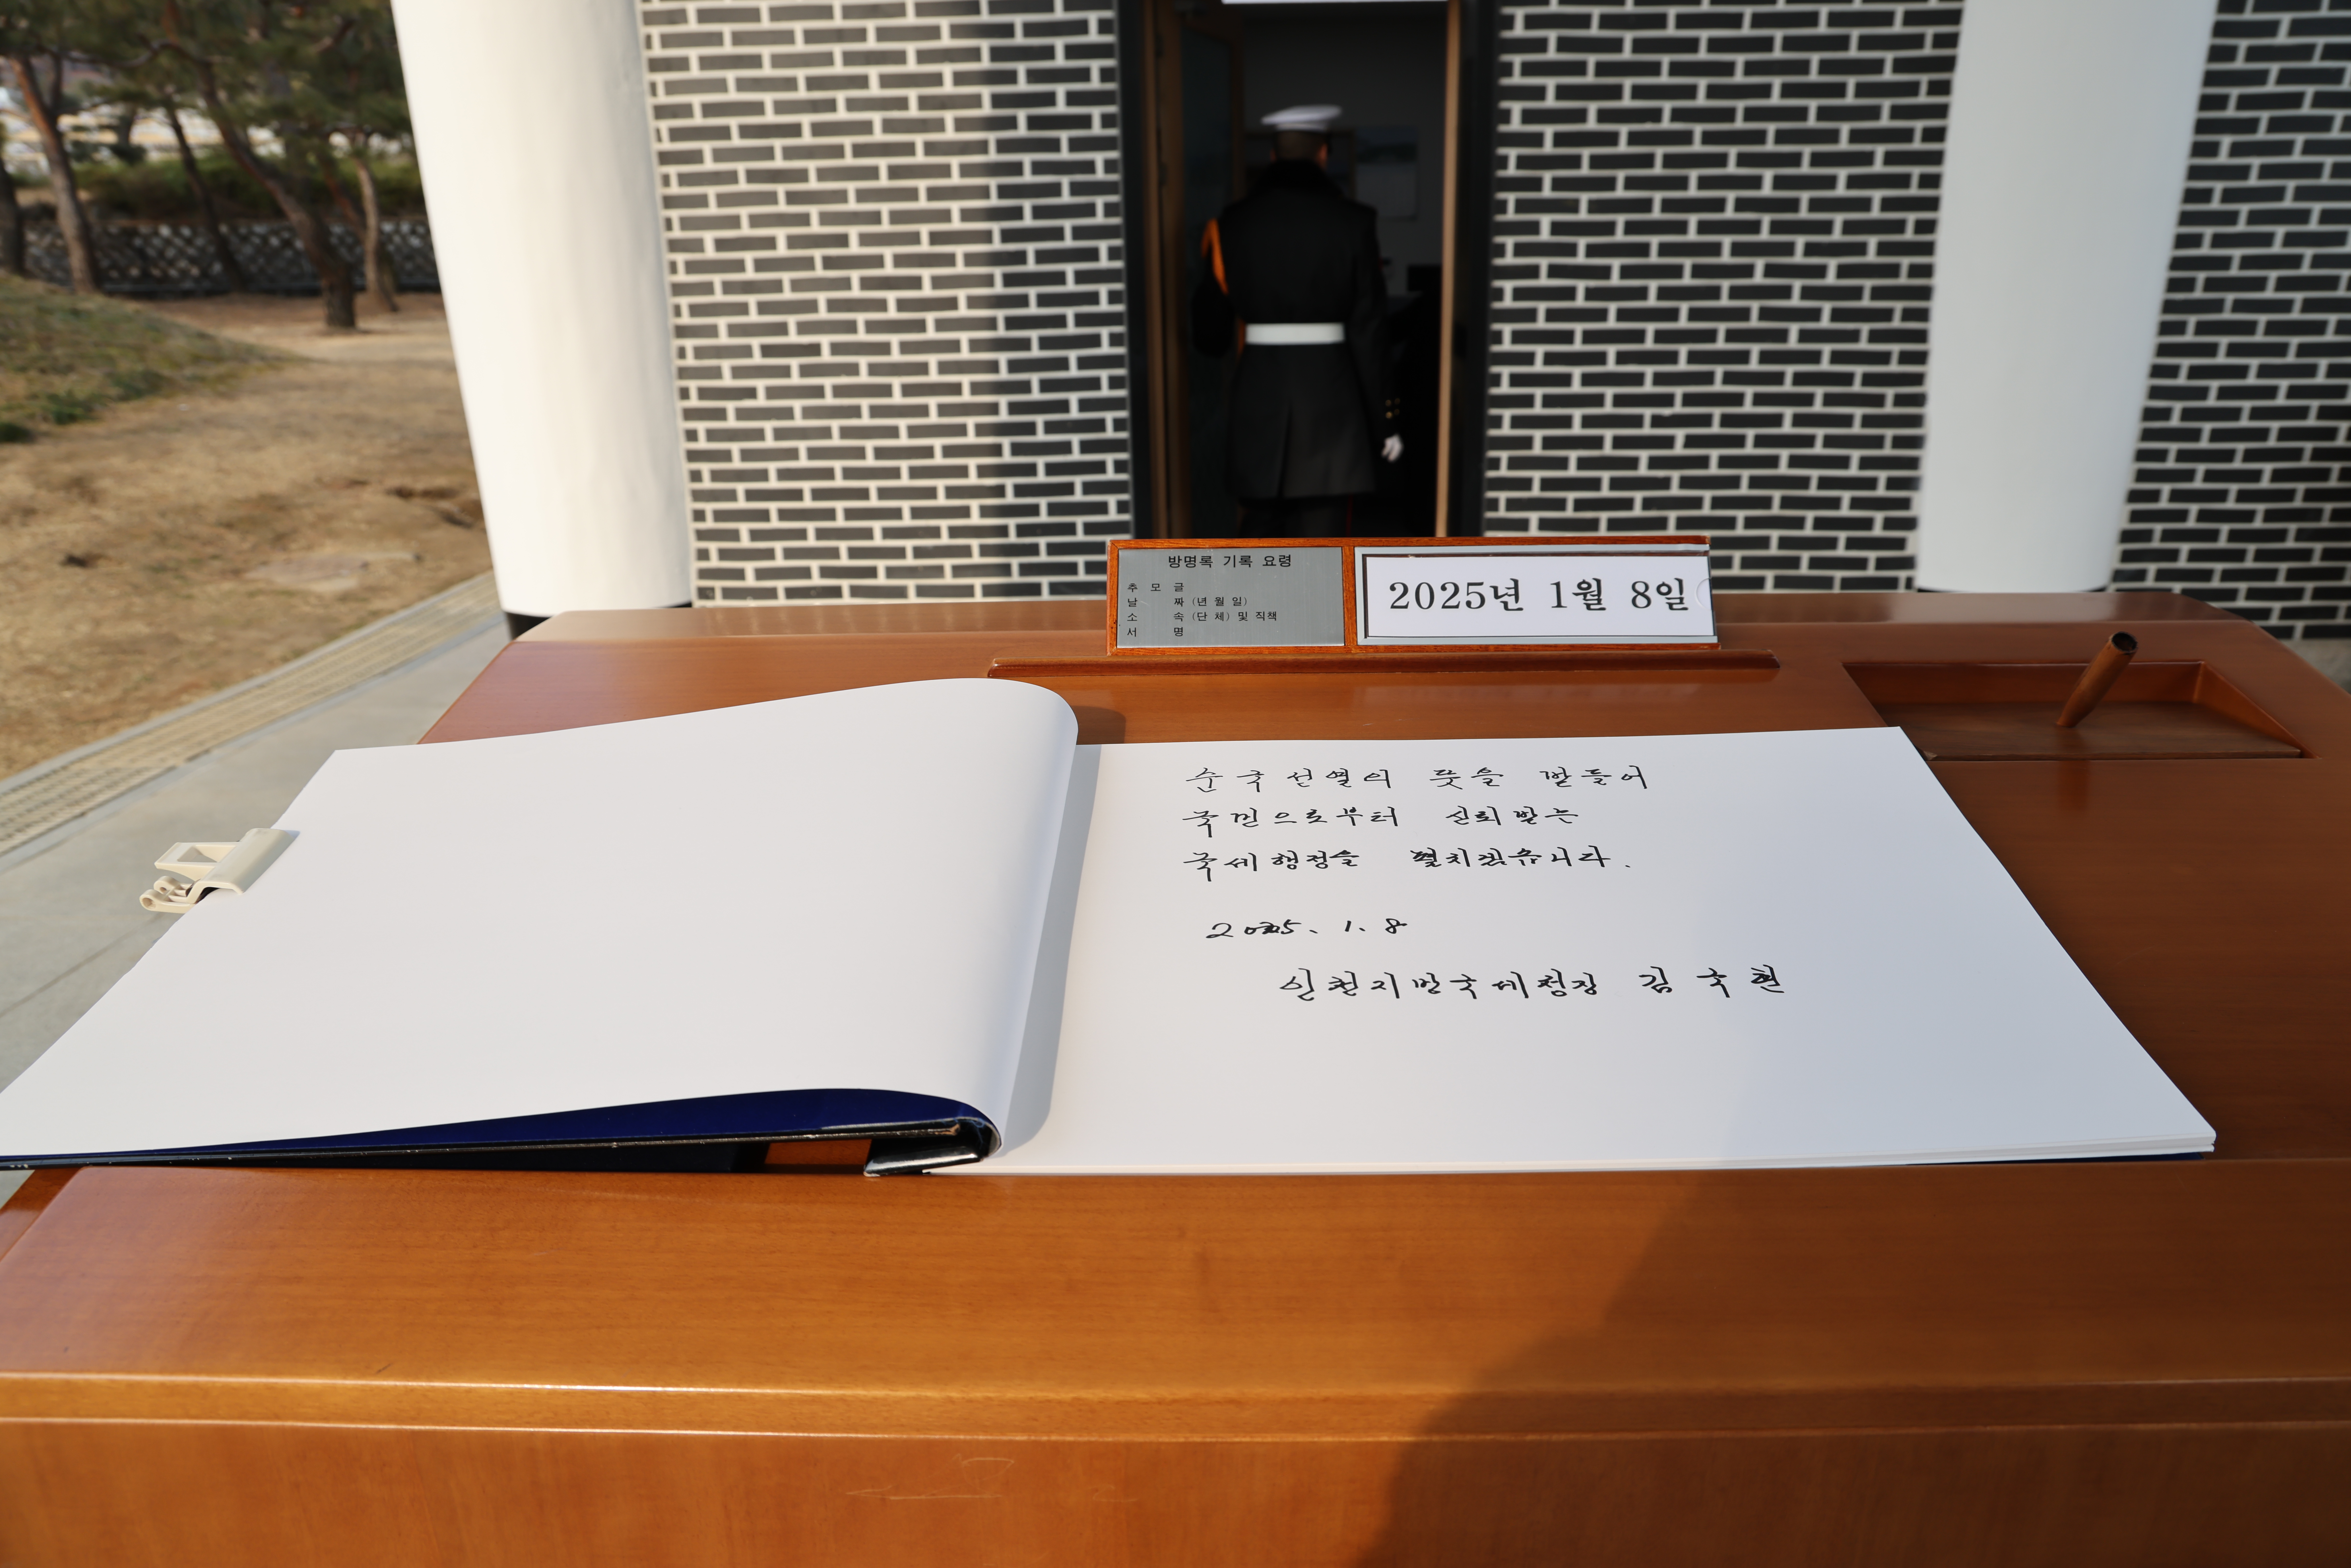 방명록 기록 요령
추 모 글
날 짜 (년 월 일)
소 속 (단 체) 및 직책
서 명
2025년 1월 8일
순국선열의 뜻을 받들어
국민으로부터 신뢰받는
국세행정을 펼치겠습니다.
2025. 1. 8
인천지방국세청장 김국현